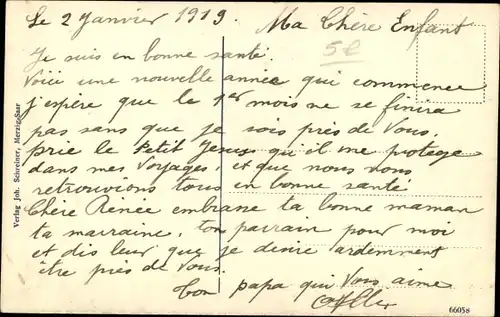 Le 2 Janvier 1919.
Ma Chère Enfant
5E
Je suis en bonne santé.
Voici une nouvelle année qui commence
j'espère que le 1er mois ne se finira
pas sans que je sois près de Vous.
prie le Petit Jesus qu'il me protège
dans mes Voyages, et que nous nous
retrouvions tous en bonne santé
Chère Renée embrasse ta bonne maman
ta marraine, ton parrain pour moi
et dis leur que je desire ardemment
être près de Vous.
Ton papa qui Vous aime
Verlag Joh. Schreiner, Merzig-Saar
66058